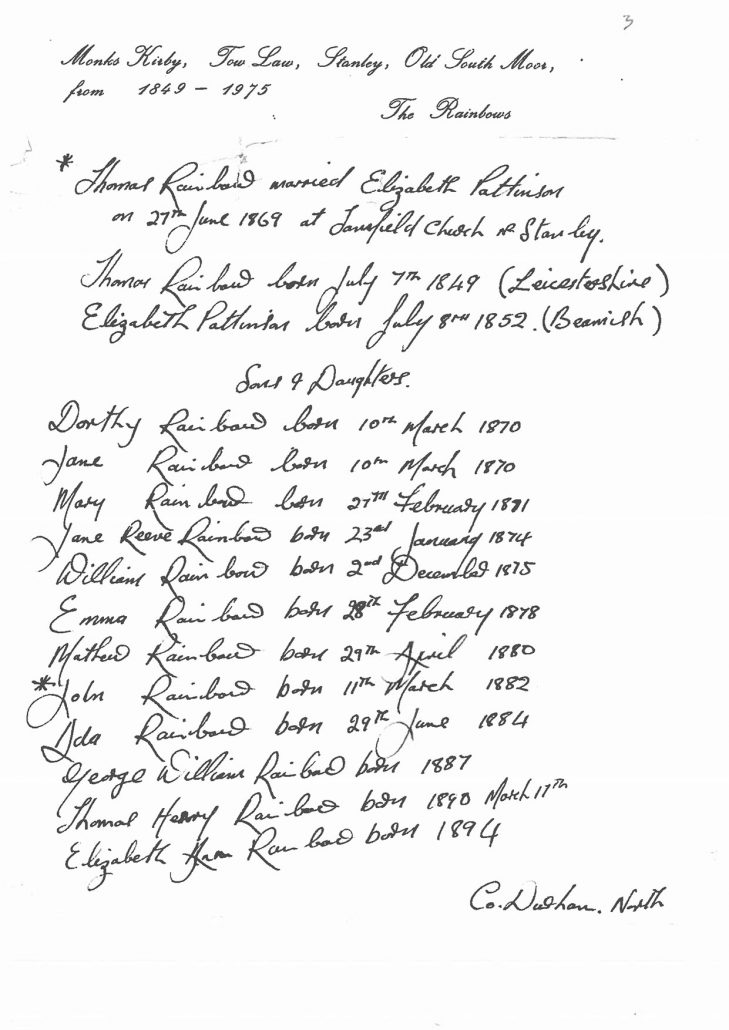 3
Monks Kirby, Tow Law, Stanley, Old South Moor,
from 1849 – 1975
The Rainbows
* Thomas Rainbow married Elizabeth Pattinson
on 27th June 1869 at Tanfield Church nr Stanley.
Thomas Rainbow born July 7th 1849 (Leicestershire)
Elizabeth Pattinson born July 8th 1852. (Beamish)
Sons & Daughters.
Dorthy Rainbow born 10th March 1870
Jane Rainbow born 10th March 1870
Mary Rainbow born 27th February 1871
Jane Reeve Rainbow born 23rd January 1874
William Rainbow born 2nd December 1875
Emma Rainbow born 28th February 1878
Mathew Rainbow born 29th April 1880
* John Rainbow born 11th March 1882
Ada Rainbow born 29th June 1884
George William Rainbow born 1887
Thomas Henry Rainbow born 1890 March 17th
Elizabeth Rainbow born 1894
Co. Durham. North